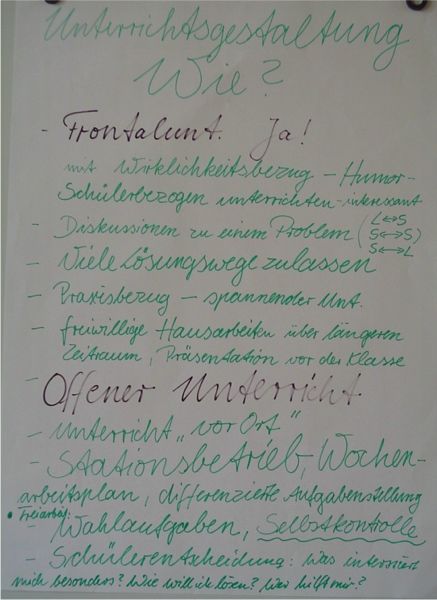 Unterrichtsgestaltung
Wie?
- Frontalunt. Ja!
mit Wirklichkeitsbezug - Humor -
Schülerbezogen unterrichten - interessant
- Diskussionen zu einem Problem (L↔S
S↔S)
S↔L
- Viele Lösungswege zulassen
- Praxisbezug - spannender Unt.
- freiwillige Hausarbeiten über längeren
Zeitraum, Präsentation vor der Klasse
- Offener Unterricht
- Unterricht „vor Ort"
- Stationsbetrieb, Wochen-
arbeitsplan, differenzierte Aufgabenstellung
• Freiarbeit
- Wahlaufgaben, Selbstkontrolle
- Schülerentscheidung: Was interessiert
mich besonders? Wie will ich lösen? Wer hilft mir?